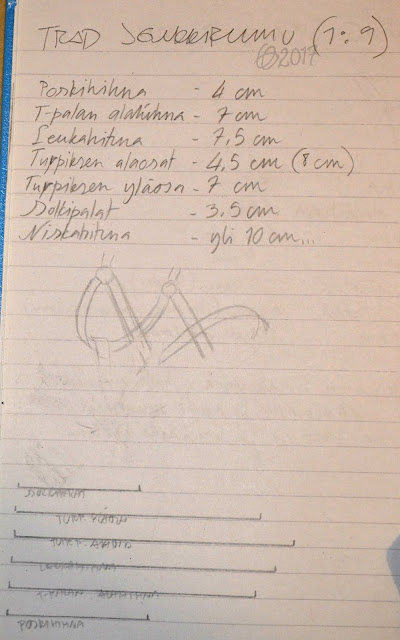 TRAD JENKKIRUMU (1:9)
2017
Poskihihna - 4 cm
T-palan alahihna - 7 cm
Leukahihna - 7,5 cm
Turpiksen alaosat - 4,5 cm (8 cm)
Turpiksen yläosa - 7 cm
Solkipalat - 3.5 cm
Niskahihna - yli 10 cm...
TURP. YLÄOSA
TURP. ALAOSAT
LEUKAHIHNA
T-PALAN ALAHIHNA
POSKIHIHNA